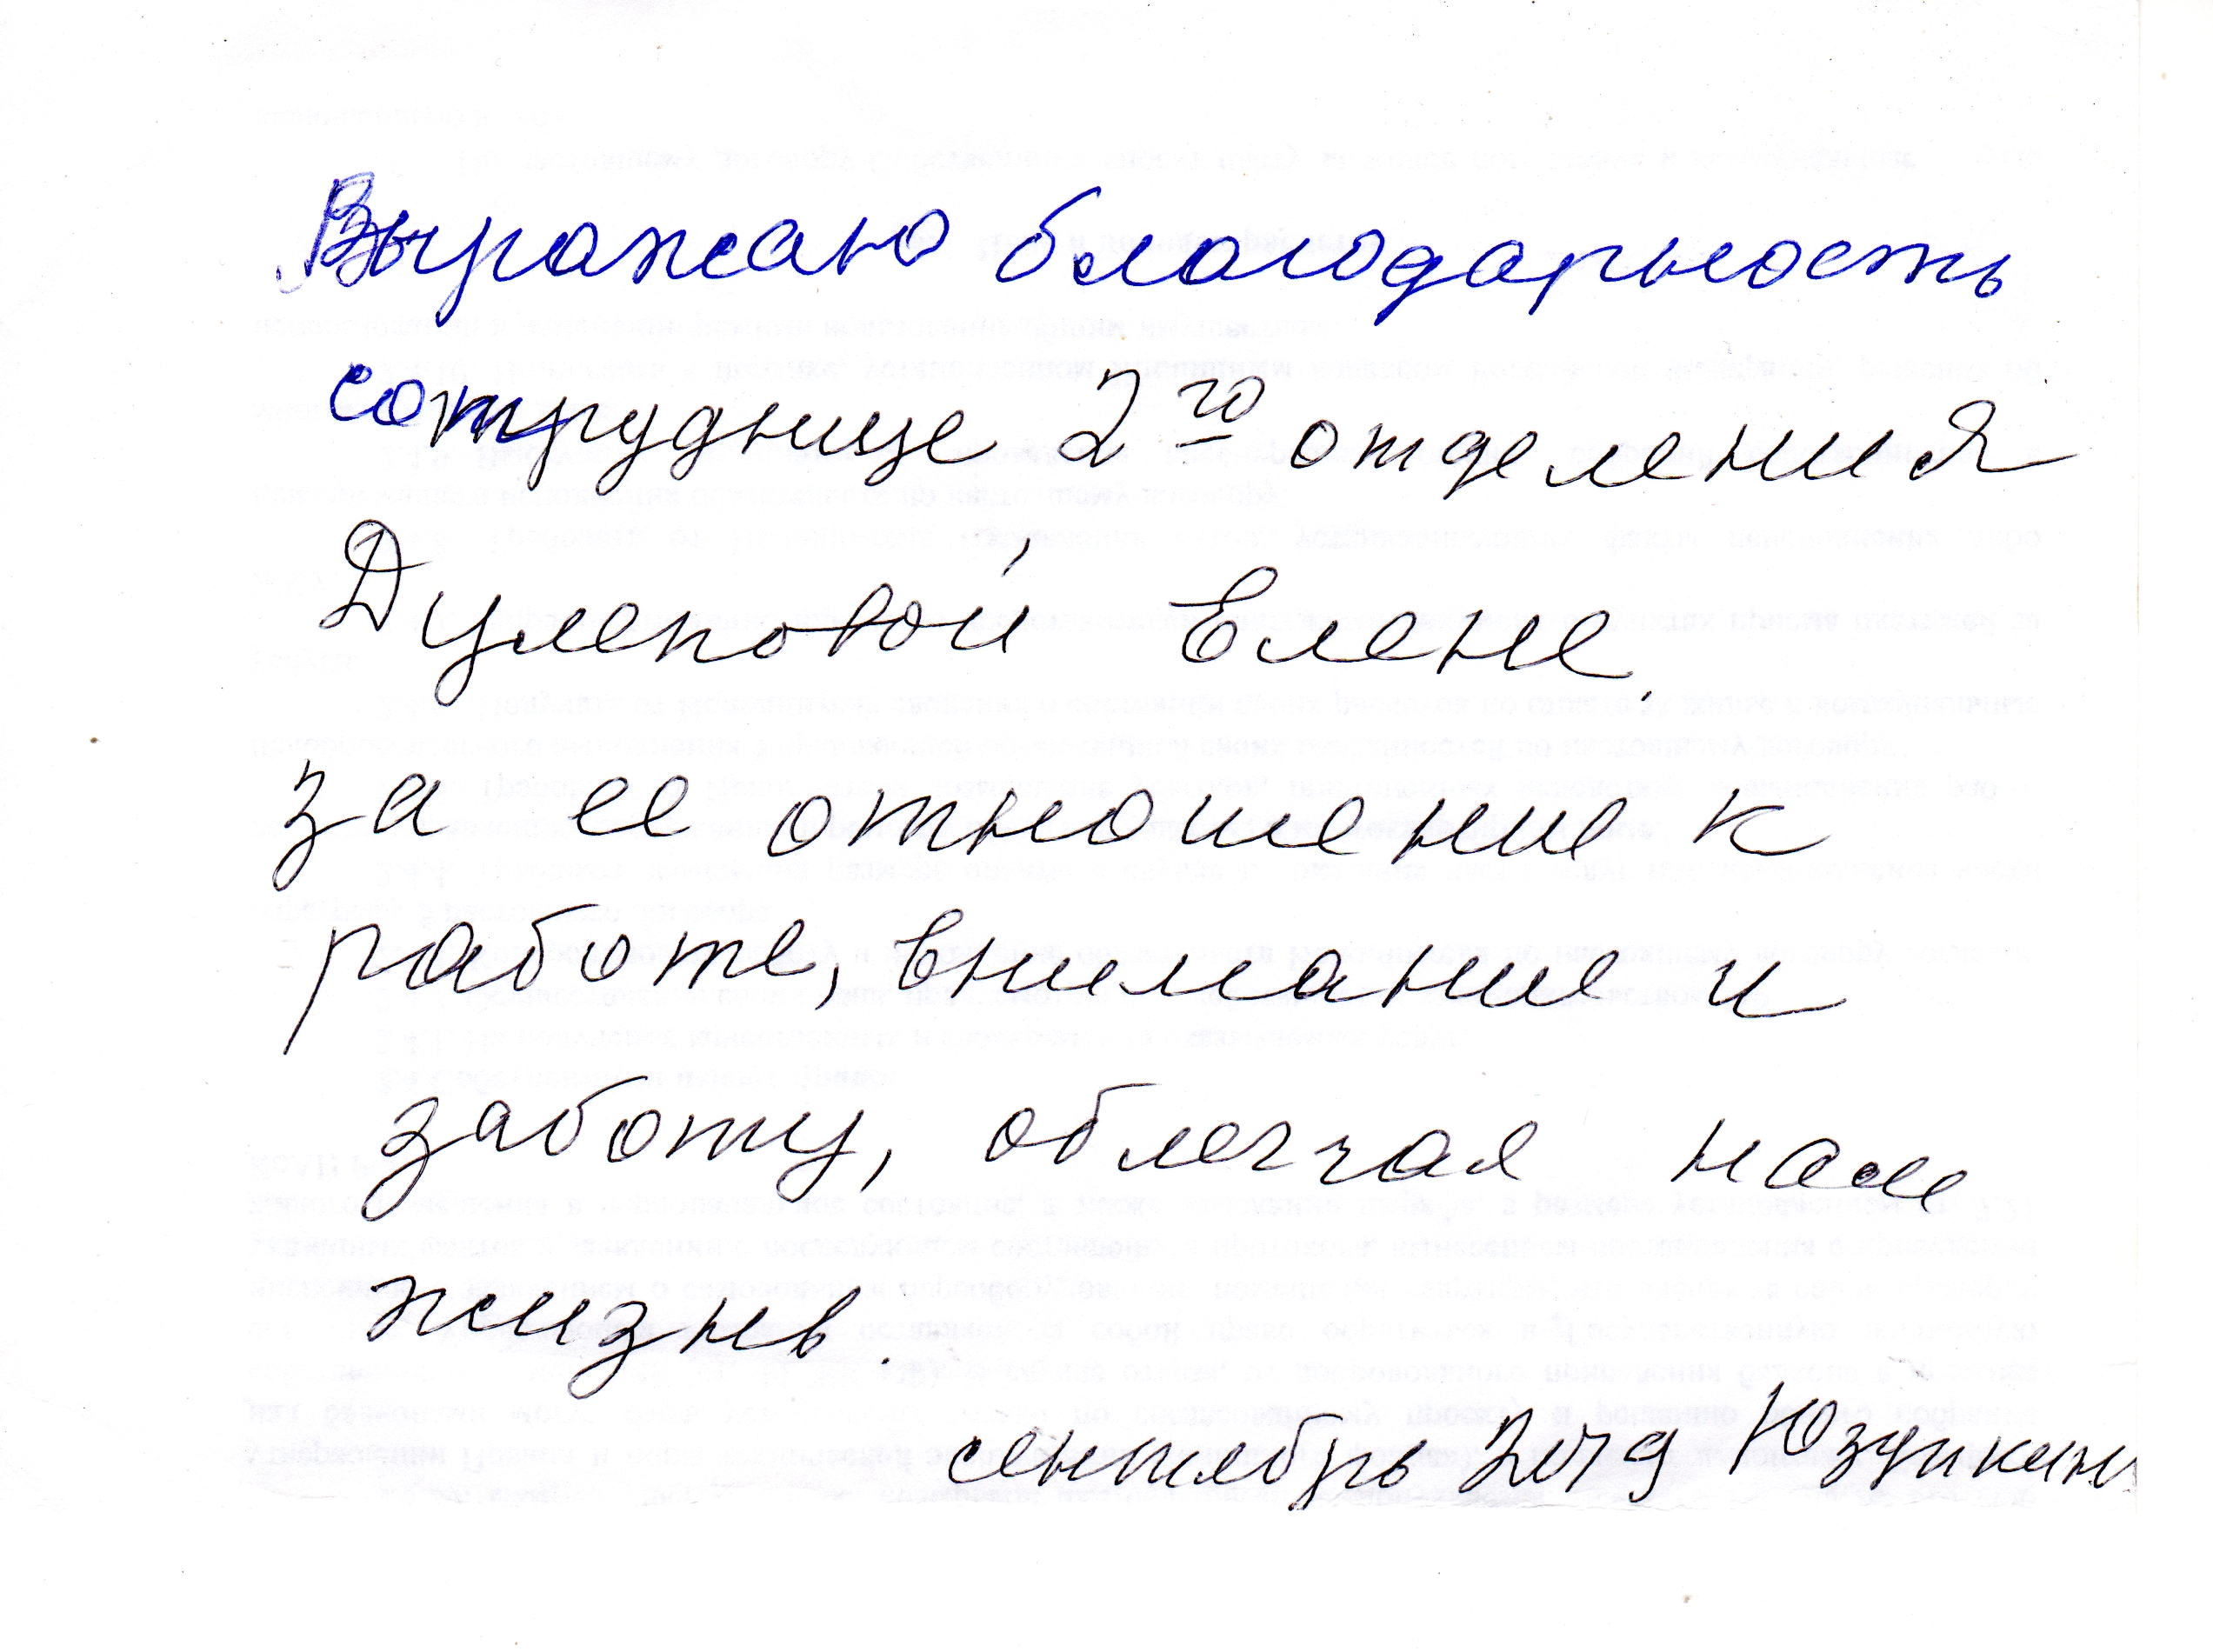 Выражаю благодарность
сотруднице 2го отделения
Дулеповой Елене
за ее отношение к
работе, внимание и
заботу, облегчая нам
жизнь.
сентябрь 2019